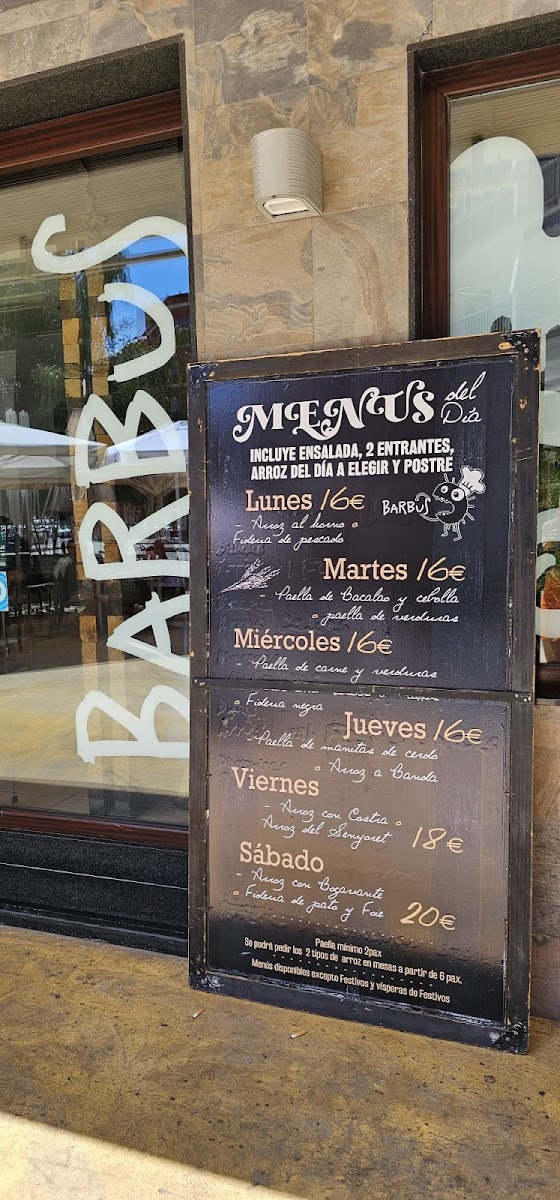 BARBUS
MENUS del Día
INCLUYE ENSALADA, 2 ENTRANTES,
ARROZ DEL DÍA A ELEGIR Y POSTRE
Lunes 16€
BARBUS
- Arroz al horno o
Fideua de pescado
Martes 16€
- Paella de Bacalao y cebolla
o paella de verduras
Miércoles 16€
- Paella de carne y verduras
o Fideua negra
Jueves 16€
- Paella de manitas de cerdo
o Arroz a Banda
Viernes
- Arroz con Costra o
Arroz del Senyoret 18€
Sábado
- Arroz con Bogavante
o Fideua de pato y Foie 20€
Paella mínimo 2pax
Se podrá pedir los 2 tipos de arroz en mesas a partir de 6 pax.
Menús disponibles excepto Festivos y vísperas de Festivos